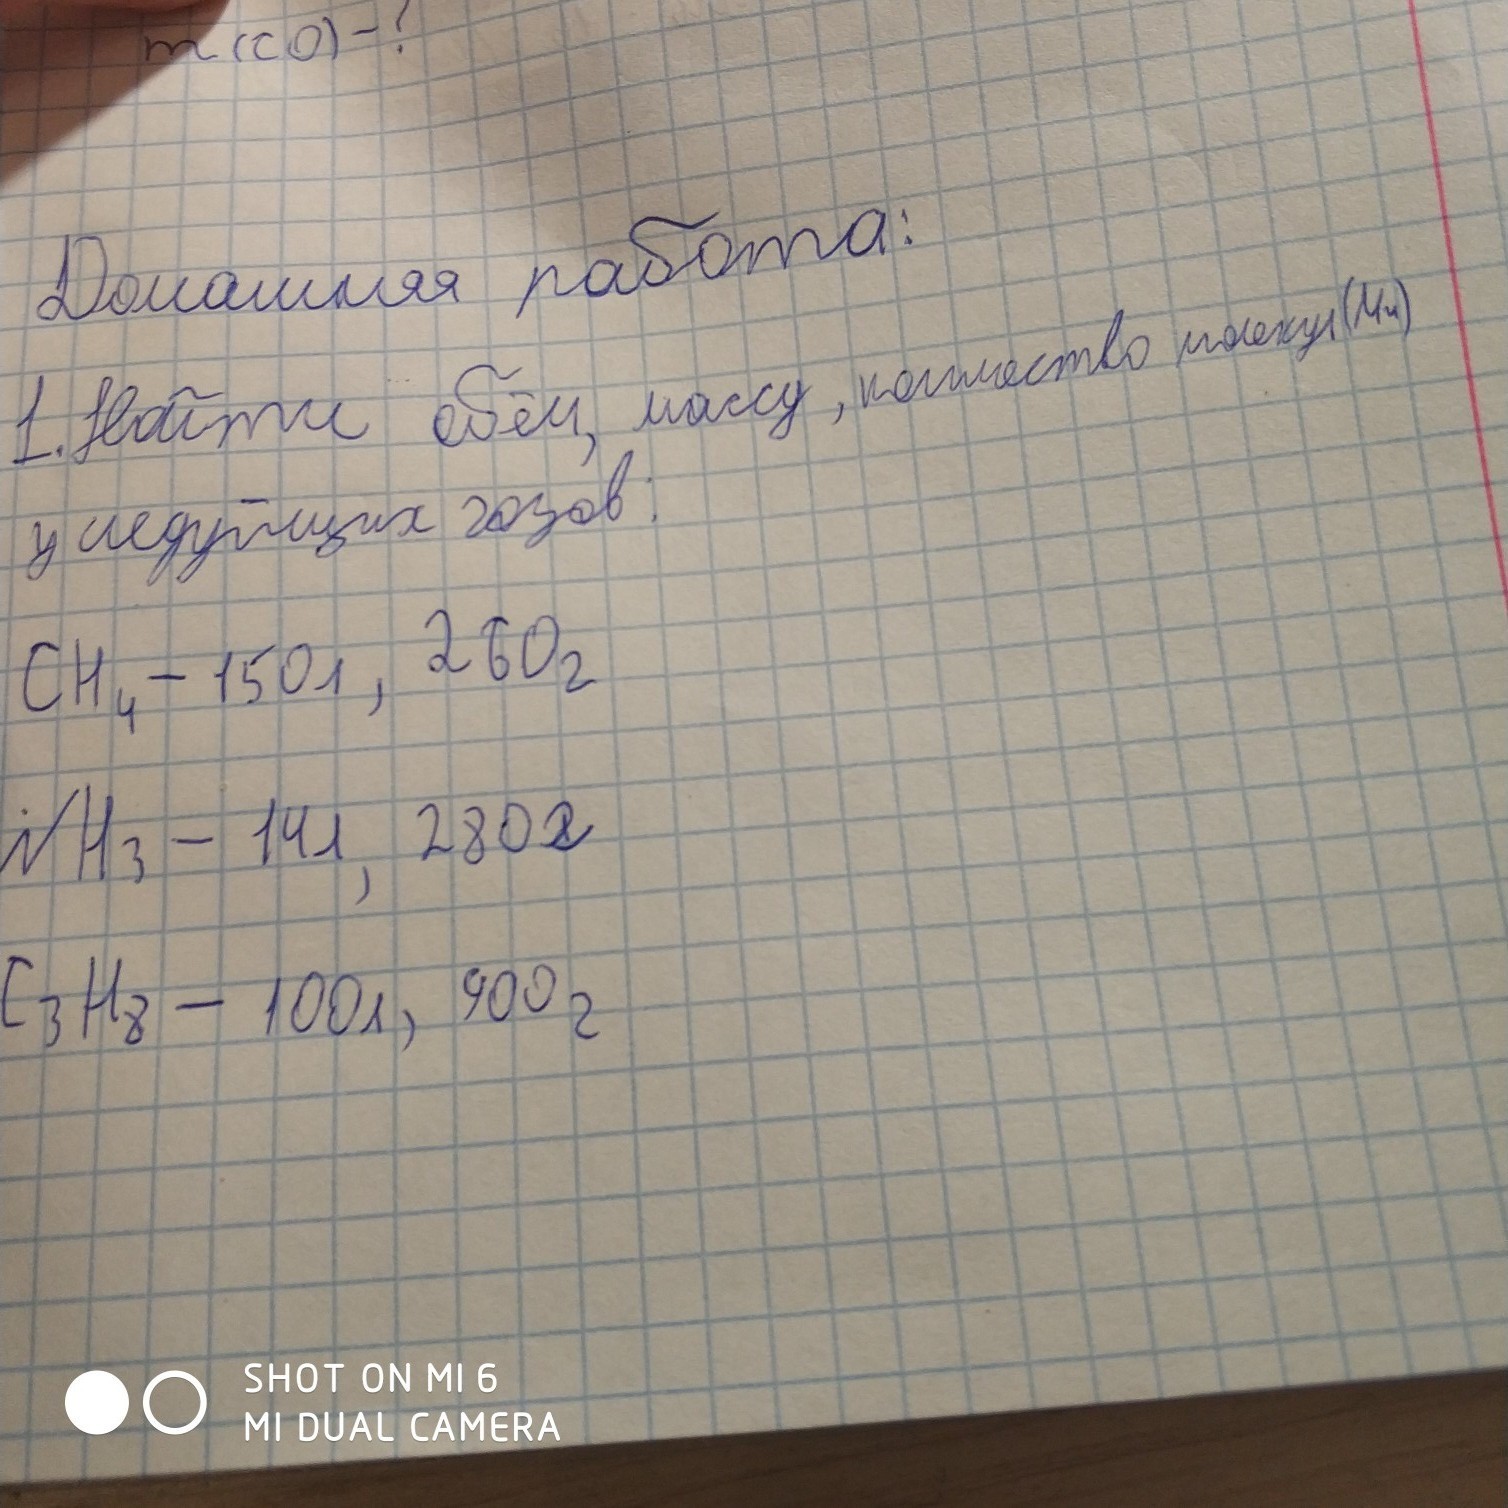 m(CO)-?
Домашняя работа:
1. Найти обём, массу, количество молекул(Mч)
у следущих газов:
CH₄ - 150л, 260г
NH₃ - 14л, 280г
C₃H₈ - 100л, 900г
SHOT ON MI 6
MI DUAL CAMERA